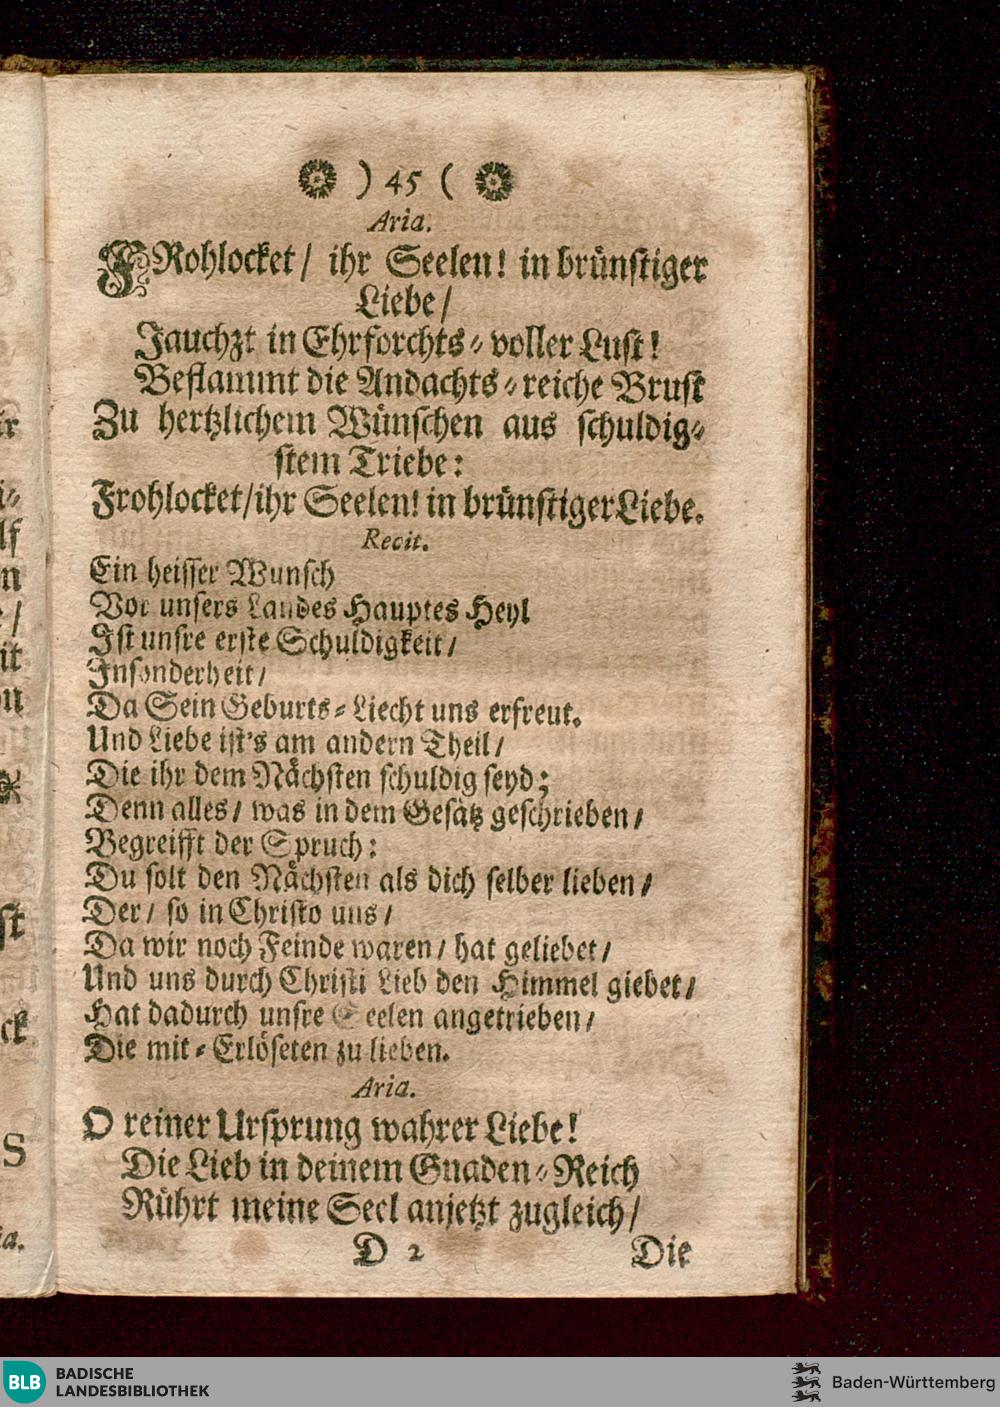 ) 45 (
Aria.
FRohlocket / ihr Seelen! in brünstiger
Liebe /
Jauchzt in Ehrforchts-voller Lust!
Beflammt die Andachts-reiche Brust
Zu hertzlichem Wünschen aus schuldig-
stem Triebe:
Frohlocket/ihr Seelen! in brünstiger Liebe.
Recit.
Ein heisser Wunsch
Vor unsers Landes Hauptes Heyl
Ist unsre erste Schuldigkeit /
Insonderheit /
Da Sein Geburts-Liecht uns erfreut.
Und Liebe ist's am andern Theil /
Die ihr dem Nächsten schuldig seyd;
Denn alles / was in dem Gesätz geschrieben /
Begreifft der Spruch:
Du solt den Nächsten als dich selber lieben /
Der / so in Christo uns /
Da wir noch Feinde waren / hat geliebet /
Und uns durch Christi Lieb den Himmel giebet /
Hat dadurch unsre Seelen angetrieben /
Die mit-Erlöseten zu lieben.
Aria.
O reiner Ursprung wahrer Liebe!
Die Lieb in deinem Gnaden-Reich
Rührt meine Seel anjetzt zugleich /
D 2
Die
BLB BADISCHE
LANDESBIBLIOTHEK
Baden-Württemberg